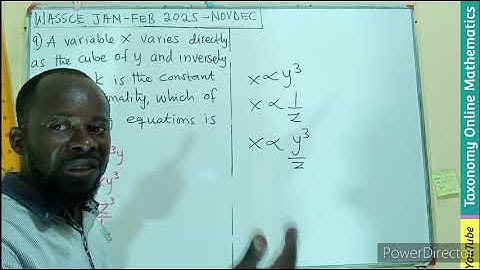 WASSCE JAN-FEB 2025-NOVDEC
9) A variable x varies directly
as the cube of y and inversely
k is the constant
which of
equations is
y
y³
z³
x ∝ y³
x ∝ 1/z
x ∝ y³/z
Taxonomy Online Mathematics
YouTube
PowerDirector